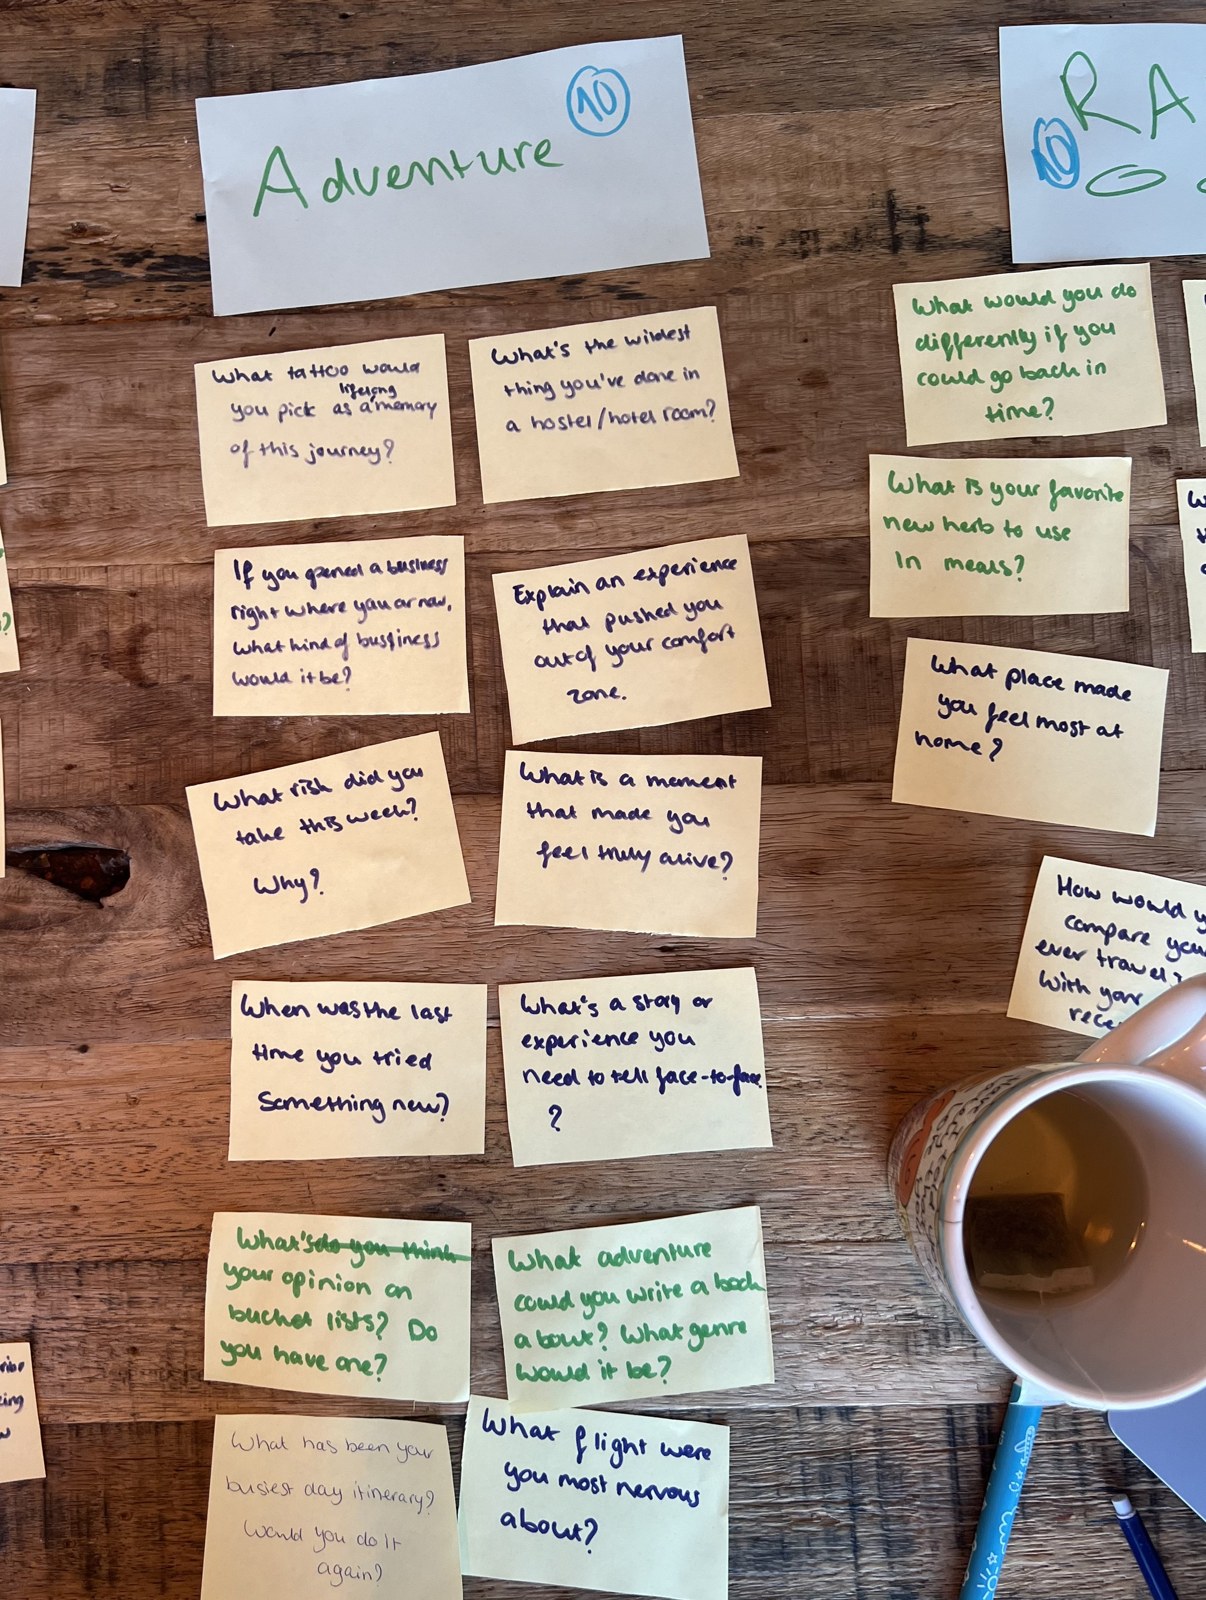 Adventure
10
What tattoo would
lifelong
you pick as a memory
of this journey?
What's the wildest
thing you've done in
a hostel/hotel room?
If you opened a business
right where you ar now,
what kind of bussiness
would it be?
Explain an experience
that pushed you
out of your comfort
zone.
What risk did you
take this week?
Why?
What is a moment
that made you
feel truly alive?
When was the last
time you tried
Something new?
What's a story or
experience you
need to tell face-to-face
?
What's do you think
your opinion on
bucket lists? Do
you have one?
What adventure
could you write a book
about? What genre
would it be?
What has been your
busiest day itinerary?
Would you do it
again?
What flight were
you most nervous
about?
RA
10
What would you do
differently if you
could go back in
time?
What is your favorite
new herb to use
in meals?
What place made
you feel most at
home?
How would
compare
ever travel?
With your